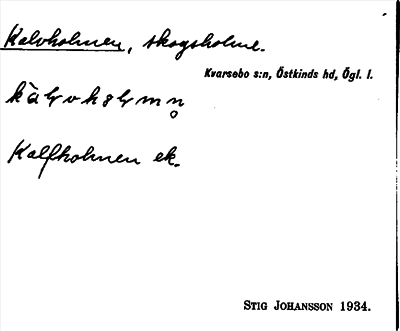 Kalvholmen, skogsholme.
Kvarsebo s:n, Östkinds hd, Ögl. l.
Kalfholmen ek.
STIG JOHANSSON 1934.